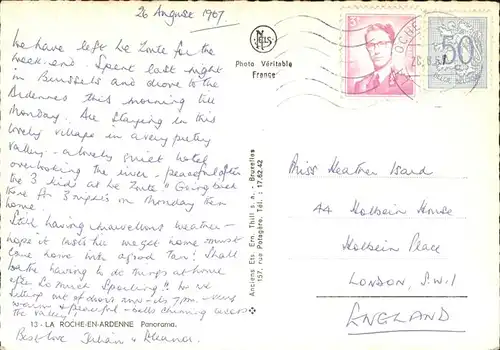 26 August 1967.
We have left Le Zoute for the
week-end. Spent last night
in Brussels and drove to the
Ardennes this morning till
Monday. Are staying in this
lovely village in a very pretty
valley - a lovely quiet hotel
overlooking the river - peaceful after
the 3 kids at Le Zoute! Going back
there for 3 nights on Monday then
home.
Still having marvellous weather -
hope it lasts till we get home must
come home with a good tan! Shall
be having to do things at home
after so much
sitting out of doors now - its 7 p.m. - very
warm & peaceful - bells chiming across
the valley!
13 - LA ROCHE-EN-ARDENNE Panorama.
Best love Julian & Eleanor.
NELS
Photo Véritable
France
Anciens Ets. Ern. Thill s. a., Bruxelles
157, rue Potagère. Tél. : 17.62.42
3F
50
Miss Heather Izard
44 Holbein House
Holbein Place
LONDON, S.W.1
ENGLAND